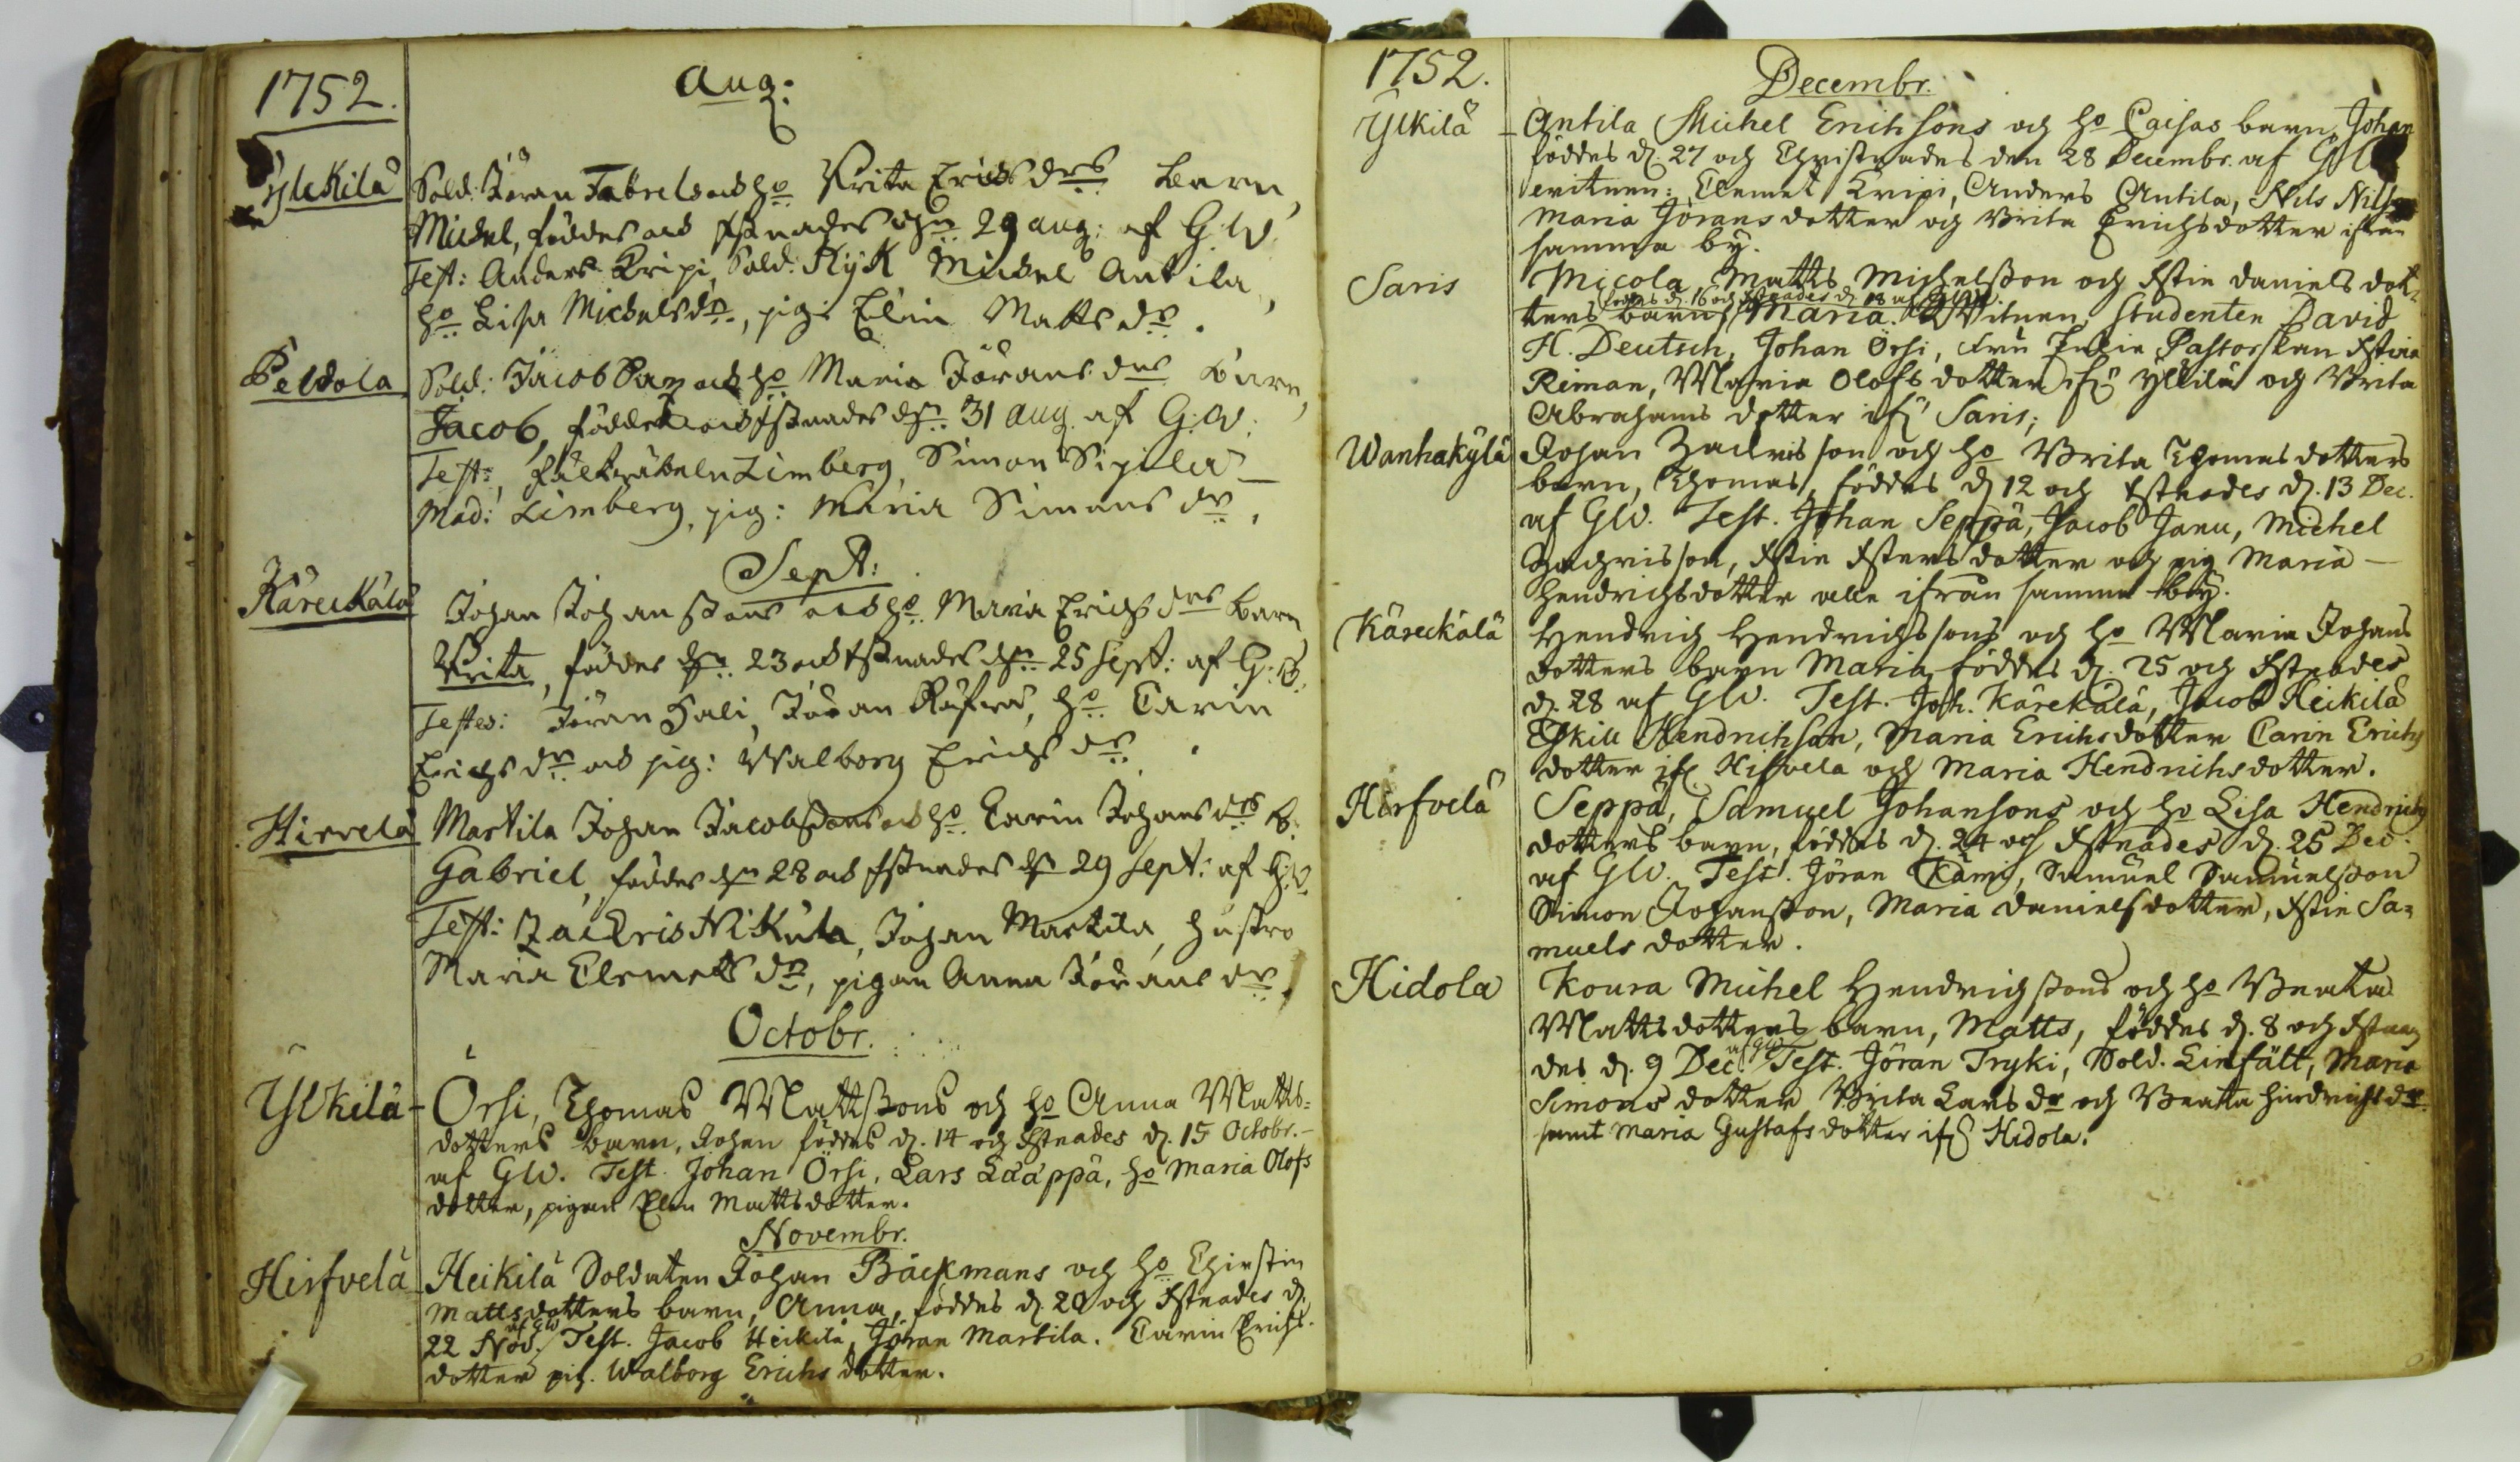 1752.
Aug:
Ylekilä
Sold: Jöran Fabrels och ho Brita Erichs drs barn,
Michel, föddes och xstnades dn 29 aug: af G.W.
Test: Anders Kripi, Sold: Kijk Michel Antila,
ho Lisa Michelsdr, pig: Elin Matts dr.
Peldola
Sold: Jacob och ho Maria Jörans drs barn,
Jacob, föddes och xstnades dn 31 aug. af G.W.
Test: Limberg, Simon Sipilä
Mad: Limberg, pig: Maria Simons dr.
Sept:
Käreckälä
Johan Johanssons och ho Maria Erichs drs barn
Brita, föddes dn 23 och xstnades dn 25 Sept: af G:W.
Testes: Jöran Hali, Jöran, ho Carin
Erichs dr och pig: Walborg Erichs dr.
Hirvelä
Martila Johan Jacobssons och ho Carin Johans drs b.
Gabriel, föddes dn 28 och xstnades dn 29 Sept: af G.W.
Test: Zackris Nikula, Johan Martila, hustro
Maria Clemetts dr, pigan Anna Jörans dr.
Octobr.
Ylkilä
Örsi, Thomas Mattssons och ho Anna Matts=
dotters barn, Johan föddes d. 14 och xstnades d. 15 Octobr.
af GW. Test. Johan Örsi, Lars Lääppä, ho Maria Olofs
dotter, pigan Elin Mattsdotter.
Novembr.
Hirfvelä
Heikilä Soldaten Johan Bäckmans och ho Chirstin
Mattsdotters barn, Anna, föddes d. 20 och xstnades d.
22 Nov. af GW Test. Jacob Heikilä, Jöran Martila. Carin Erichs
dotter pig. Walborg Erichs dotter.
1752.
Decembr.
Ylkilä
Antila Michel Erichsons och ho Caisas barn Johan
föddes d. 27 och Christnades den 28 Decembr. af GW
witnen: Clemet Kripi, Anders Antila, Nils Nilsson
Maria Jöransdotter och Brita Erichsdotter ifrån
samma by.
Saris
Micola, Matts Michelsson och xstin Daniels dot=
föddes d. 16 och xstnades d. 18 af GW.
ters barn, Maria. Witnen, Studenten David
H. Deutsch, Johan Örsi, Pastorskan xstina
Riman, Maria Olofs dotter ifr. Ylkilä och Brita
Abrahams dotter ifr. Saris;
Wanhakylä
Johan Zachrisson och ho Brita Thomas dotters
barn, Thomas, föddes d. 12 och xstnades d. 13 Dec.
af GW. Test. Johan Seppä, Jacob Janu, Michel
Zachrisson, xstin xstersdotter och pig Maria
Hendrichsdotter alla ifrån samma by.
Käreckälä
Hendrich Hendrichssons och ho Maria Johans
dotters barn Maria föddes d. 25 och xstnades
d. 28 af GW. Test. Joh. Kärekälä, Jacob Heikilä
Eskill Hendrichson, Maria Erichsdotter Carin Erichs
dotter ifr. Hirvela och Maria Hendrichsdotter.
Hirfvelä
Seppä, Samuel Johansons och ho Lisa Hendrichs
dotters barn, föddes d. 24 och xstnades d. 25 Dec.
af GW. Test. Jöran Kämi, Samuel Samuelsson
Simon Johansson, Maria Danielsdotter, xstin Sa=
muels dotter.
Hidola
Koura Michel Hendrichssons och ho Beata
Mattsdotters barn, Matts, föddes d. 8 och xstna=
des d. 9 Dec. af GW Test. Jöran Tryki, Sold. Linfält, Maria
Simons dotter Brita Lars dr och Beata Hindrichs dr.
samt Maria Gustafs dotter ifr. Hidola.